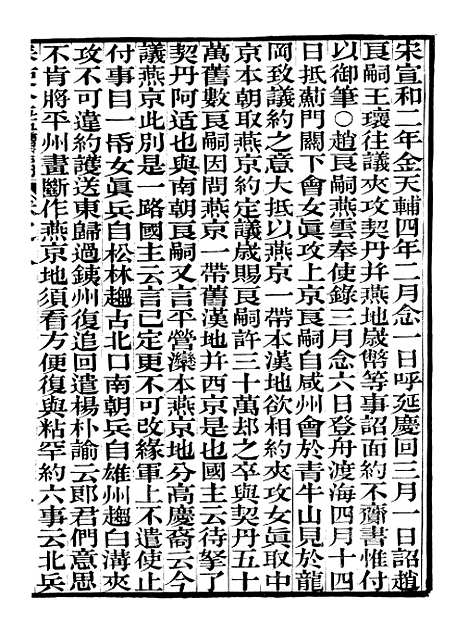 宋宣和二年金天輔四年二月念一日呼延慶回三月一日詔趙
良嗣王環往議夾攻契丹并燕地歲幣等事詔面約不齎書惟付
以御筆○趙良嗣燕雲奉使錄三月念六日登舟渡海四月十四
日抵薊門關下會女眞攻上京良嗣自咸州會於青牛山見於龍
岡致議約之意大抵以燕京一帶本漢地欲相約夾攻女眞取中
京本朝取燕京約定議歲賜良嗣許三十萬却之卒與契丹五十
萬舊數良嗣因問燕京一帶舊漢地并西京是也國主云待拏了
契丹阿适也與南朝良嗣又言平營灤本燕京地分高慶裔云今
議燕京此別是一路國主云言已定更不可改緣軍上不遣使止
付事目一帋女眞兵自松林趨古北口南朝兵自雄州趨白溝夾
攻不可違約護送東歸過銕州復追回遣楊朴諭云郎君們意思
不肯將平州畫斷作燕京地須看方便復與粘罕約六事云北兵